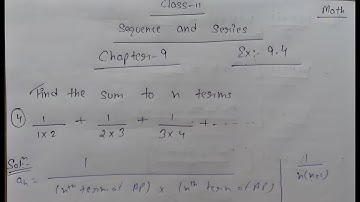 Class-11
Math
Sequence and Series
Chapter-9 Ex:- 9.4
Find the sum to n terms
4 1/1×2 + 1/2×3 + 1/3×4 + ......
Solⁿ: aₙ = 1/(nᵗʰ term of AP) × (nᵗʰ term of AP) | 1/n(n+1)